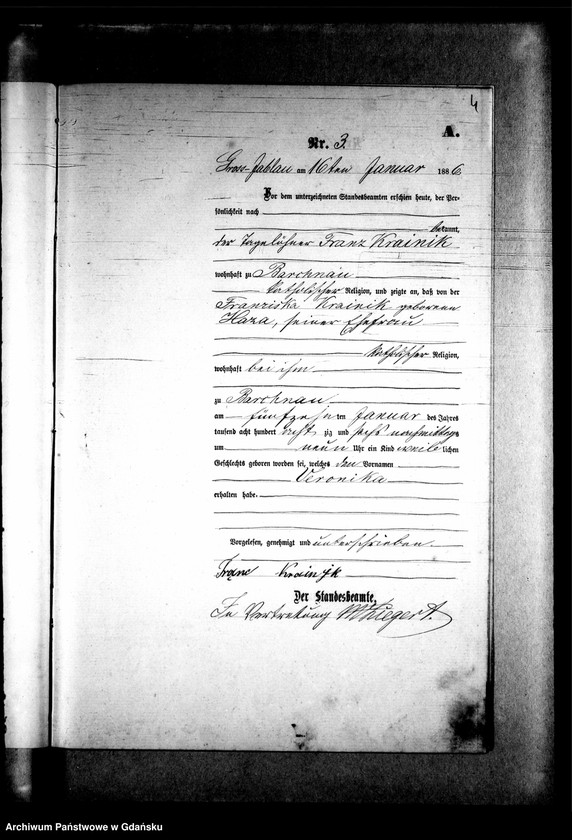 4
A.
Nr. 3.
Gross-Jablau am 16ten Januar 1886
Vor dem unterzeichneten Standesbeamten erschien heute, der Per-
sönlichkeit nach
bekannt,
der Tagelöhner Franz Krainik
wohnhaft zu Barchnau
katholischer Religion, und zeigte an, daß von der
Franziska Krainik geborenen
Haza, seiner Ehefrau
katholischer Religion,
wohnhaft bei ihm
zu Barchnau
am fünfzehn ten Januar des Jahres
tausend acht hundert acht zig und sechs nachmittags
um neun Uhr ein Kind weib lichen
Geschlechts geboren worden sei, welches den Vornamen
Veronika
erhalten habe.
Vorgelesen, genehmigt und unterschrieben.
Franc Krainik
Der Standesbeamte,
In Vertretung
Archiwum Państwowe w Gdańsku